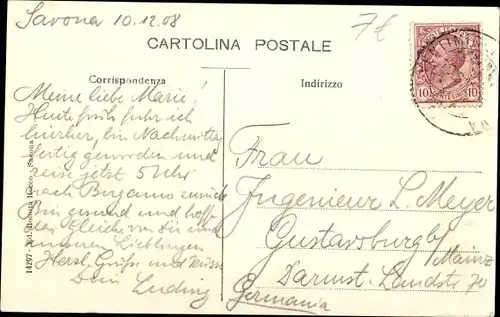 Savona 10.12.08
7€
CARTOLINA POSTALE
Corrispondenza
Indirizzo
Meine liebe Marie!
Heute früh fuhr ich
hierher, bin Nachmittag
fertig geworden und
reise jetzt 5 Uhr
nach Bergamo zurück
Bin gesund und hoffe
das Gleiche von Dir und
unseren Lieblingen
Herzl. Grüße und Küsse
Dein Ludwig
Frau
Ingenieur L. Meyer
Gustavsburg b/
Mainz
Darmst. Landstr 70
Germania
10 10
14297 - Ed. Rocco - Savona